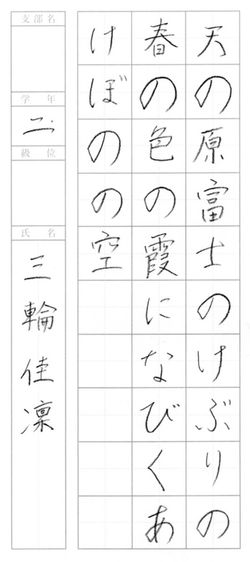 天の原富士のけぶりの
春の色の霞になびくあ
けぼのの空
支部名
学年
二
級位
氏名
三輪佳凜